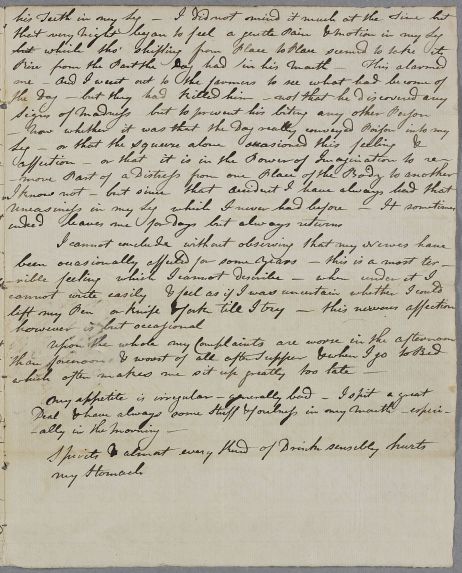 his Teeth in my Leg — I did not mind it much at the Time but
that very Night began to feel a gentle Pain & motion in my Leg
but which tho' Shifting from Place to Place seemed to take its
Rise from the Part the Dog had in his Mouth — This alarmed
me — And I went out to the farmers to see what had become of
the Dog — but they had killed him — not that he discovered any
Signs of Madness but to prevent his biting any other Person
Now whether it was that the Dog really conveyed Poison into my
Leg — or that the squeeze alone occasioned this feeling &
affection — or that it is in the Power of Imagination to re-
-move Part of a Distress from one Place of the Body to another
I know not — but since that accident I have always had that
uneasiness in my Leg which I never had before — It sometimes
indeed leaves me for Days but always returns
I cannot conclude without observing that my Nerves have
been occasionally affected for some Years — this is a most ter-
-rible feeling which I cannot describe — when under it I
cannot write easily & feel as if I was uncertain whether I could
lift my Pen or Knife & fork till I try — this nervous affection
however is but occasional
Upon the whole my Complaints are worse in the afternoon
than forenoon & worst of all after Supper & when I go to Bed
which often makes me sit up greatly too late —
my appetite is irregular — generally bad — I spit a great
Deal & have always some Stuff & foulness in my mouth — especi-
-ally in the morning —
Spirits & almost every kind of Drink sensibly hurts
my Stomach